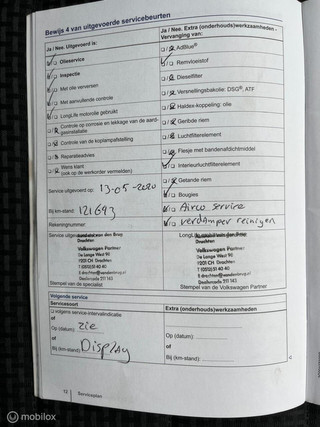 Bewijs 4 van uitgevoerde servicebeurten
Ja / Nee. Uitgevoerd is:
Olieservice
Inspectie
Met olie verversen
Met aanvullende controle
LongLife motorolie gebruikt
Controle op corrosie en lekkage van de aardgasinstallatie
Controle van de koplampafstelling
Reparatieadvies
Wens klant
(ook op de werkorder vermelden)
Service uitgevoerd op: 13-05-2020
Bij km-stand: 121693
Rekeningnummer:
Service uitgevoerd
van den Brug
Drachten
Volkswagen Partner
De Lange West 90
9201 CH Drachten
T (0512) 51 40 40
Stempel van de specialist
Ja / Nee. Extra (onderhouds)werkzaamheden -
Vervanging van:
AdBlue®
Remvloeistof
Dieselfilter
Versnellingsbakolie: DSG®, ATF
Haldex-koppeling: olie
Geribde riem
Luchtfilterelement
Flesje met bandenafdichtmiddel
Interieurluchtfilterelement
Getande riem
Bougies
Airco service
verdamper reinigen
van den Brug
Drachten
Volkswagen Partner
De Lange West 90
9201 CH Drachten
T (0512) 51 40 40
Stempel van de Volkswagen Partner
Volgende service
Servicesoort
volgens service-intervalindicatie
of
Op (datum): zie
of
Bij (km-stand): Display
Extra (onderhouds)werkzaamheden
Op (datum):
of
Bij (km-stand):
12 Serviceplan
© mobilox